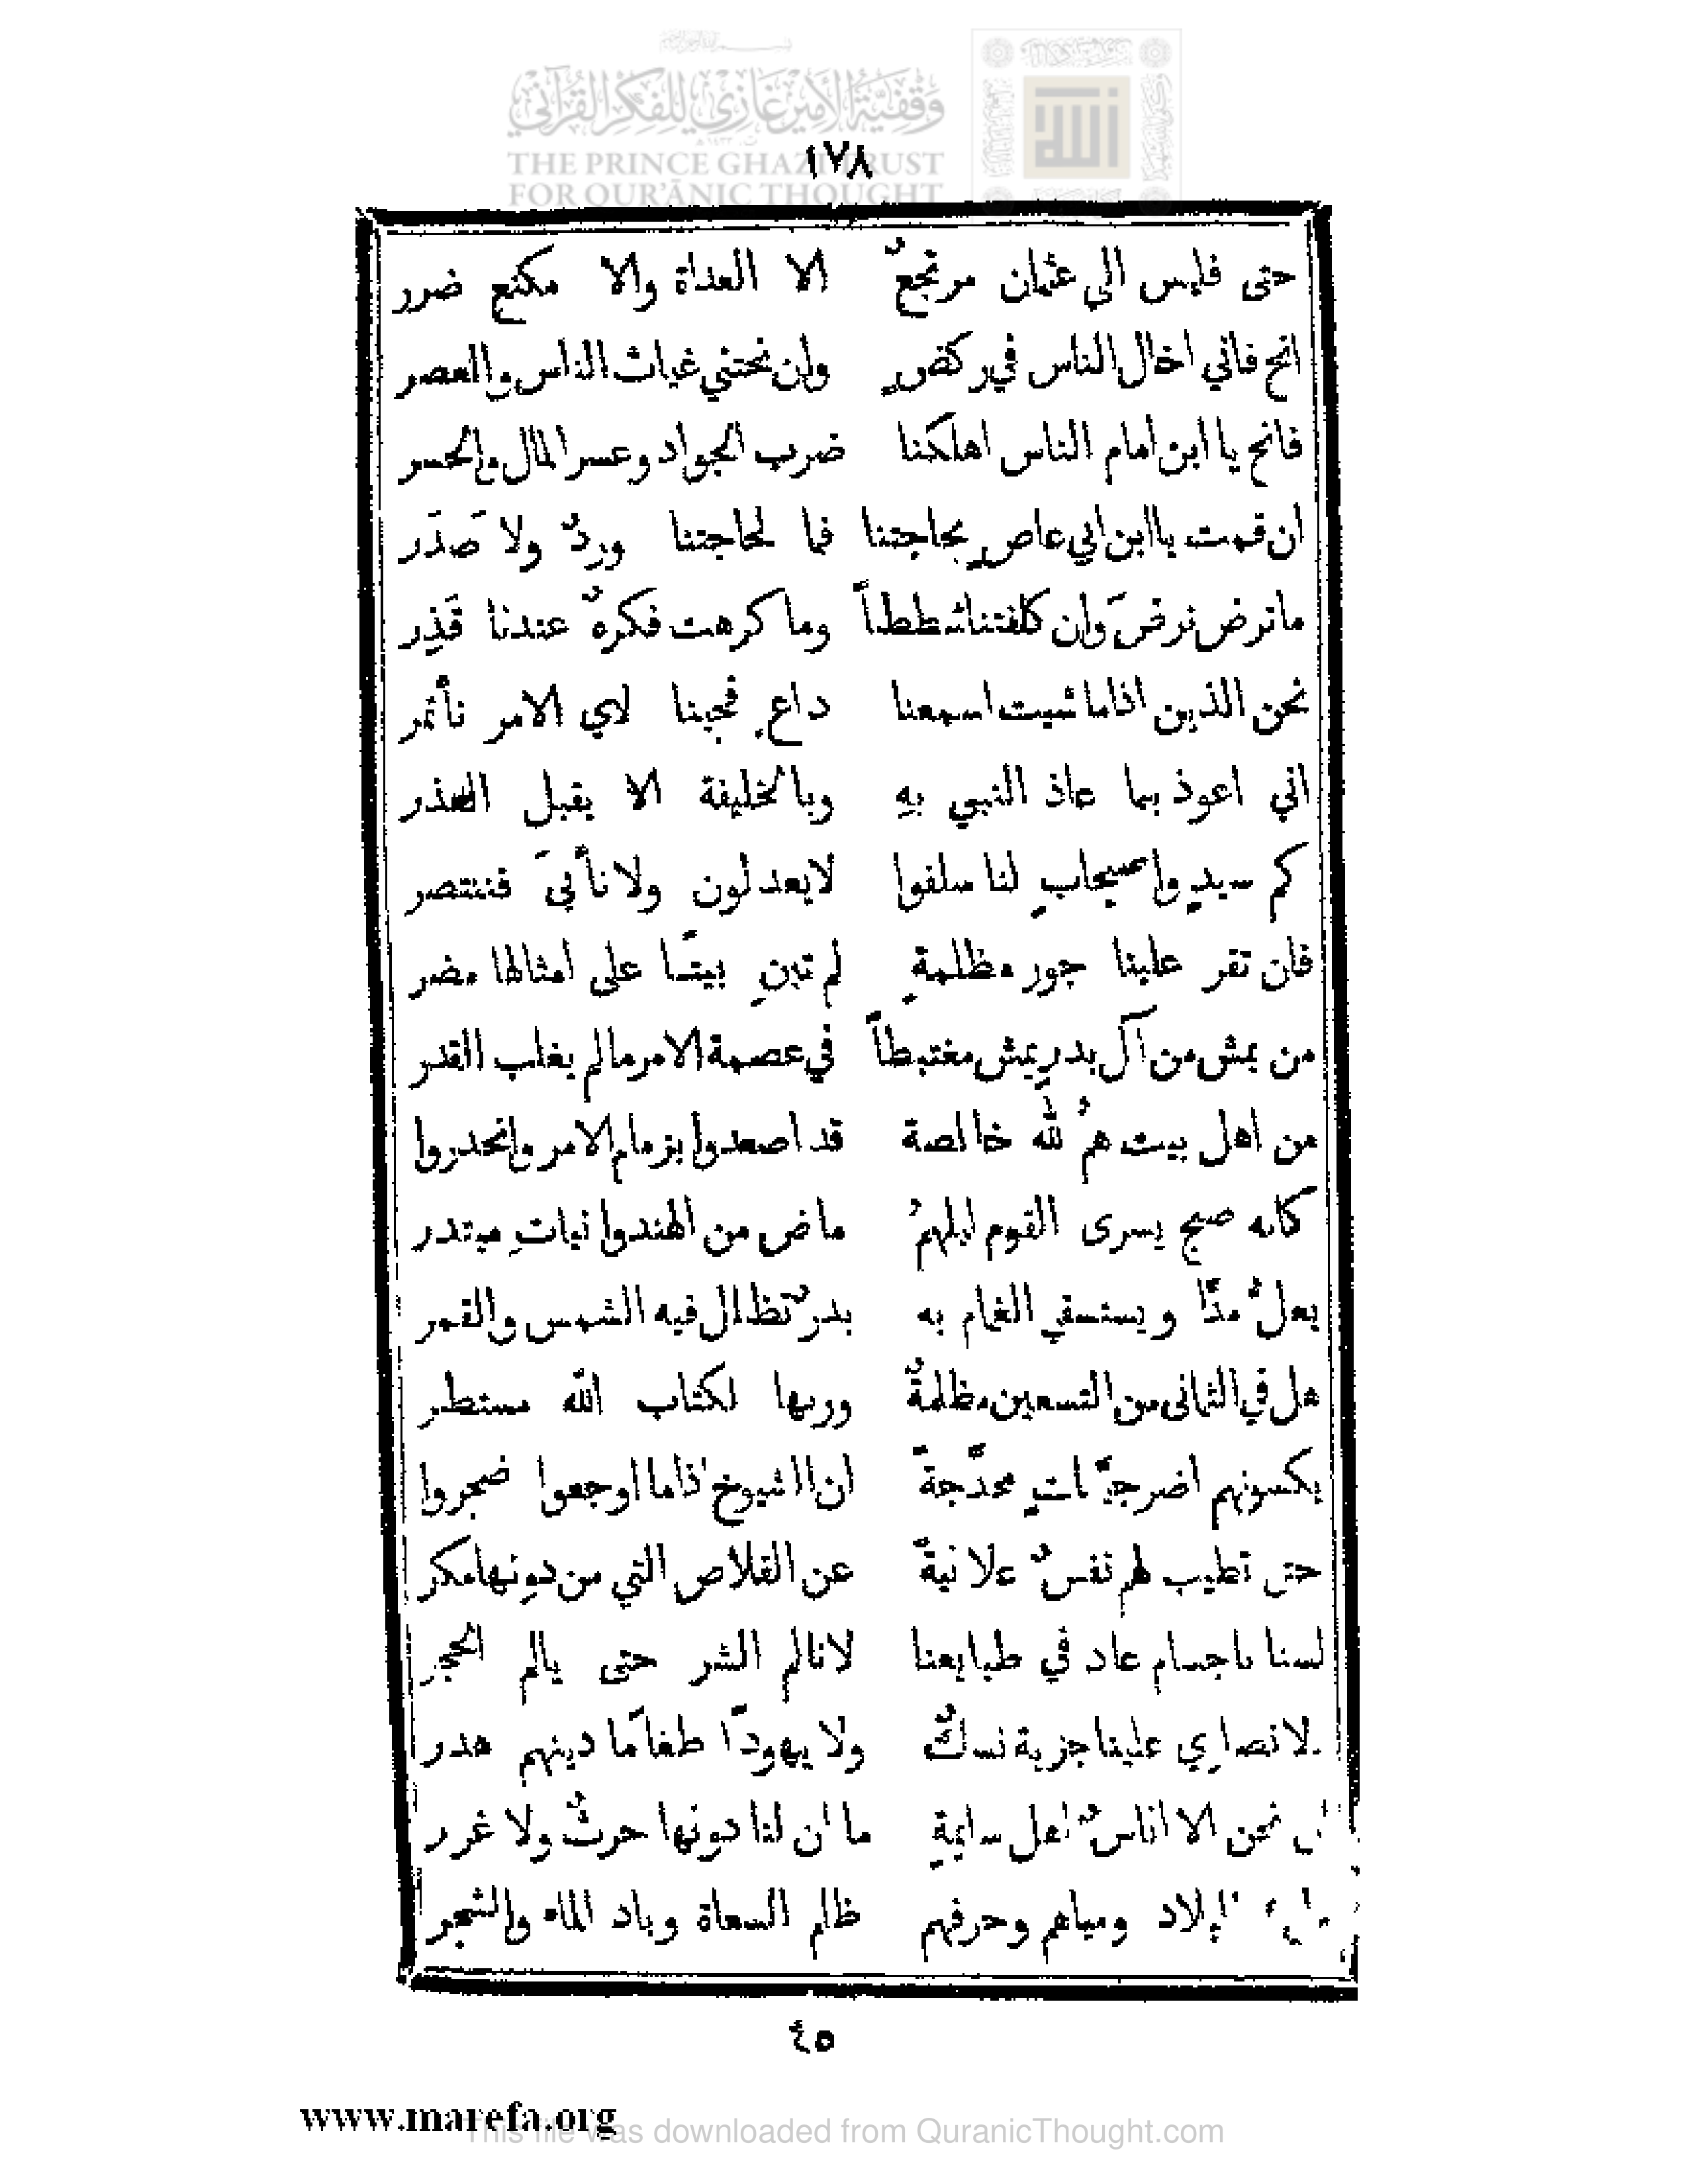 وقفية الأمير غازي للفكر القرآني
THE PRINCE GHAZI TRUST
FOR QUR'ĀNIC THOUGHT
١٧٨
حتى فليس الى عثمان مرتجعٌ الا العداة والا مكنع ضرر
انح فاني اخال الناس في ركضٍ وان نحتني غياث الناس والعصر
فانح يا ابن امام الناس اهلكنا ضرب الجواد وعسر المال والحسر
ان قمت يا ابن ابي عاصٍ بحاجتنا فما لحاجتنا وردٌ ولا صَدَر
ما ترض نرضَ وان كلفتنا شططاً وما كرهت فكرهٌ عندنا قَذِر
نحن الذين اذا ما شيت اسمعنا داعٍ فجينا لاي الامر نأتمر
اني اعوذ بما عاذ النبي بهِ وبالخليفة الا يقبل العذر
كم سيدٍ واصحابٍ لنا سلفوا لا يعدلون ولا نأبىَ فننتصر
فان تقر علينا جور مظلمةٍ لم تبنِ بيتًا على امثالها مضر
من يمش من آل بدرٍ يمش مغتبطاً في عصمة الامر ما لم يغلب القدر
من اهل بيت همُ لله خالصة قد اصعدوا بزمام الامر وانحدروا
كانه صبح يسرى القوم ليلهمُ ماض من الهندوانياتِ مبتدر
يعلُ مدًّا ويستسقي الغمام به بدرٌ تظالل فيه الشمس والقمر
هل في الثمانى من التسعين مظلمةٌ وربها لكتاب الله مستطر
يكسونهم اضرحيّاتٍ محدَّجةً ان الشيوخ اذا ما اوجعوا ضجروا
حتى تطيب لهم نفسٌ علانيةً عن القلاص التي من دونها مكر
لسنا باجسام عاد في طبايعنا لا نالم الشر حتى يالم الحجر
ولا نصارى علينا جزية نسكٌ ولا يهودًا طغامًا دينهم هدر
نحن الا اناسٌ اهل سايمةٍ ما ان لنا دونها حرثٌ ولا غرر
البلاد ومياهم وحرفهم ظلم السعاة وباد الماء والشجر
٤٥
www.marefa.org
This file was downloaded from QuranicThought.com